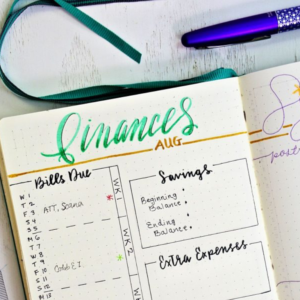 Finances
AUG
Bills Due
W 1
T 2
F 3 ATT, 
S 4
S 5
M 6
T 7
W 8
T 9
F 10
S 11
S 12
M 13
WK. 1
WK. 2
Savings
Beginning
Balance:
Ending
Balance:
Extra Expenses